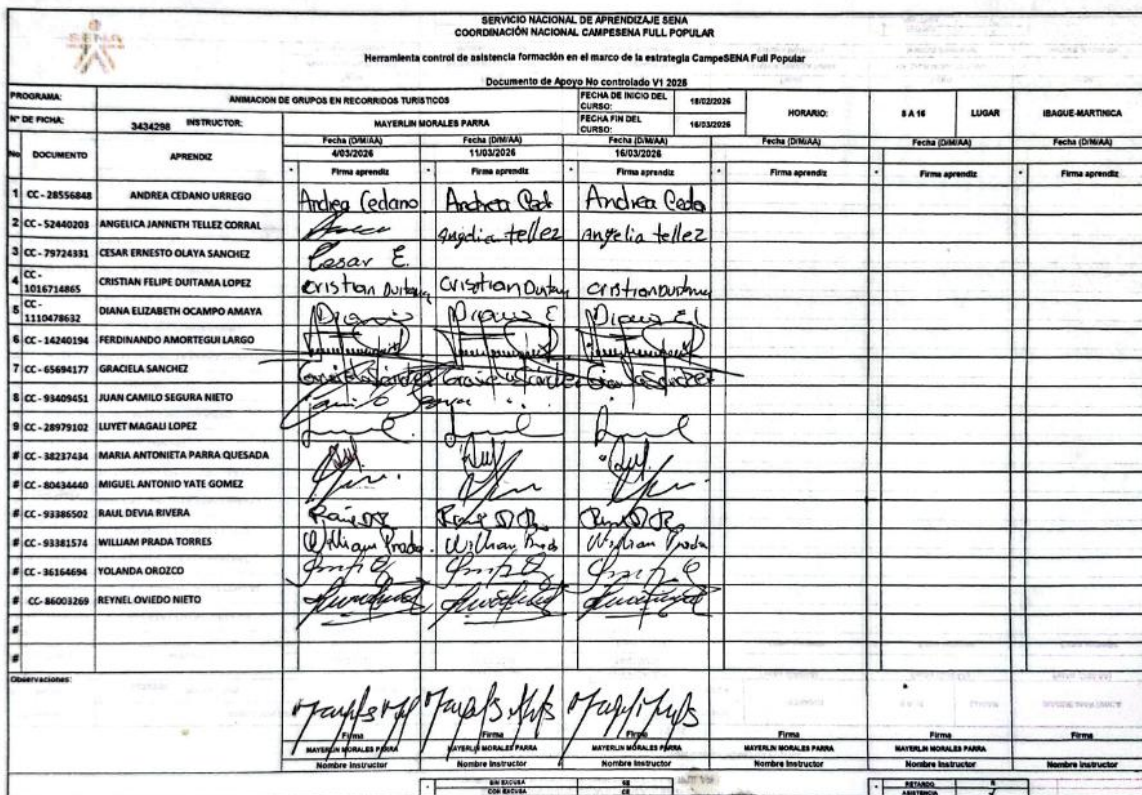 SENA
SERVICIO NACIONAL DE APRENDIZAJE SENA
COORDINACIÓN NACIONAL CAMPESENA FULL POPULAR
Herramienta control de asistencia formación en el marco de la estrategia CampeSENA Full Popular
Documento de Apoyo No controlado V1 2026
PROGRAMA: ANIMACION DE GRUPOS EN RECORRIDOS TURISTICOS FECHA DE INICIO DEL CURSO: 18/02/2026 HORARIO: 8 A 16 LUGAR IBAGUE-MARTINICA
N° DE FICHA: 3434298 INSTRUCTOR: MAYERLIN MORALES PARRA FECHA FIN DEL CURSO: 16/03/2026
No DOCUMENTO APRENDIZ Fecha (D/M/AA) Fecha (D/M/AA) Fecha (D/M/AA) Fecha (D/M/AA) Fecha (D/M/AA) Fecha (D/M/AA)
4/03/2026 11/03/2026 16/03/2026
* Firma aprendiz * Firma aprendiz * Firma aprendiz * Firma aprendiz * Firma aprendiz * Firma aprendiz
1 CC - 28556848 ANDREA CEDANO URREGO Andrea Cedano Andrea Ced Andrea Ceda
2 CC - 52440203 ANGELICA JANNETH TELLEZ CORRAL Angelia tellez Angelia tellez
3 CC - 79724331 CESAR ERNESTO OLAYA SANCHEZ Cesar E.
4 CC - 1016714865 CRISTIAN FELIPE DUITAMA LOPEZ Cristian Cristian Cristian
5 CC - 1110478632 DIANA ELIZABETH OCAMPO AMAYA
6 CC - 14240194 FERDINANDO AMORTEGUI LARGO
7 CC - 65694177 GRACIELA SANCHEZ Graciela Sánchez Graciela Sánchez Graciela Sánchez
8 CC - 93409451 JUAN CAMILO SEGURA NIETO Camilo Segura
9 CC - 28979102 LUYET MAGALI LOPEZ
# CC - 38237434 MARIA ANTONIETA PARRA QUESADA
# CC - 80434440 MIGUEL ANTONIO YATE GOMEZ
# CC - 93386502 RAUL DEVIA RIVERA
# CC - 93381574 WILLIAM PRADA TORRES William Prada William Prada William Prada
# CC - 36164694 YOLANDA OROZCO
# CC- 86003269 REYNEL OVIEDO NIETO
#
#
Observaciones:
Firma Firma Firma Firma Firma Firma
MAYERLIN MORALES PARRA MAYERLIN MORALES PARRA MAYERLIN MORALES PARRA MAYERLIN MORALES PARRA MAYERLIN MORALES PARRA
Nombre Instructor Nombre Instructor Nombre Instructor Nombre Instructor Nombre Instructor Nombre Instructor
* SIN EXCUSA SE * RETARDO R
CON EXCUSA CE ASISTENCIA ✓